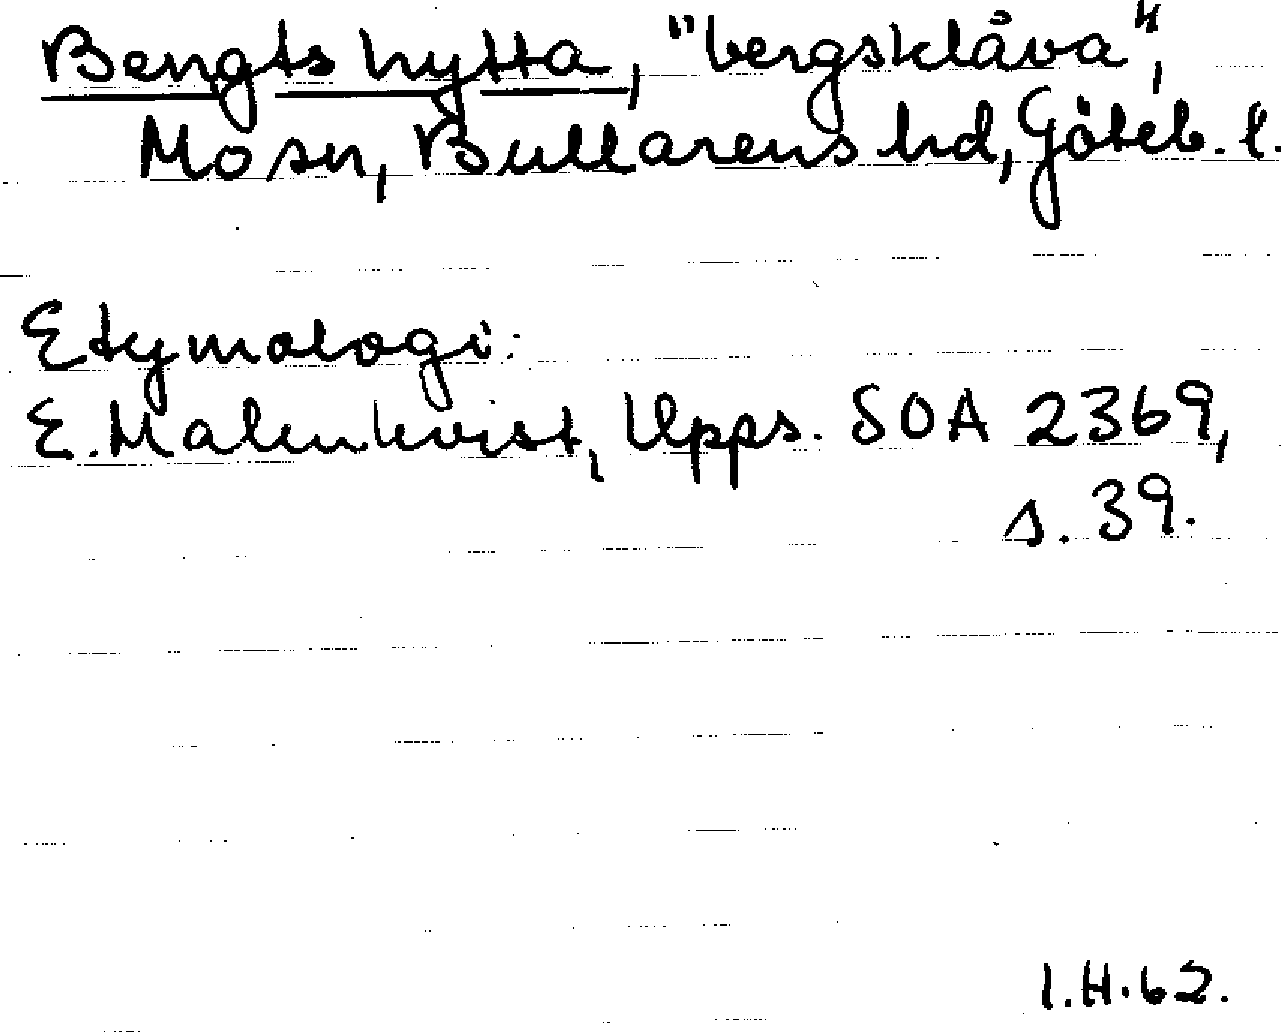 Bengtshytta, "bergsklåva",
Mo sn, Bullarens hd, Göteb. l.
Etymologi:
E. Malmkvist, Upps. SOA 2369,
s. 39.
I.H. 62.